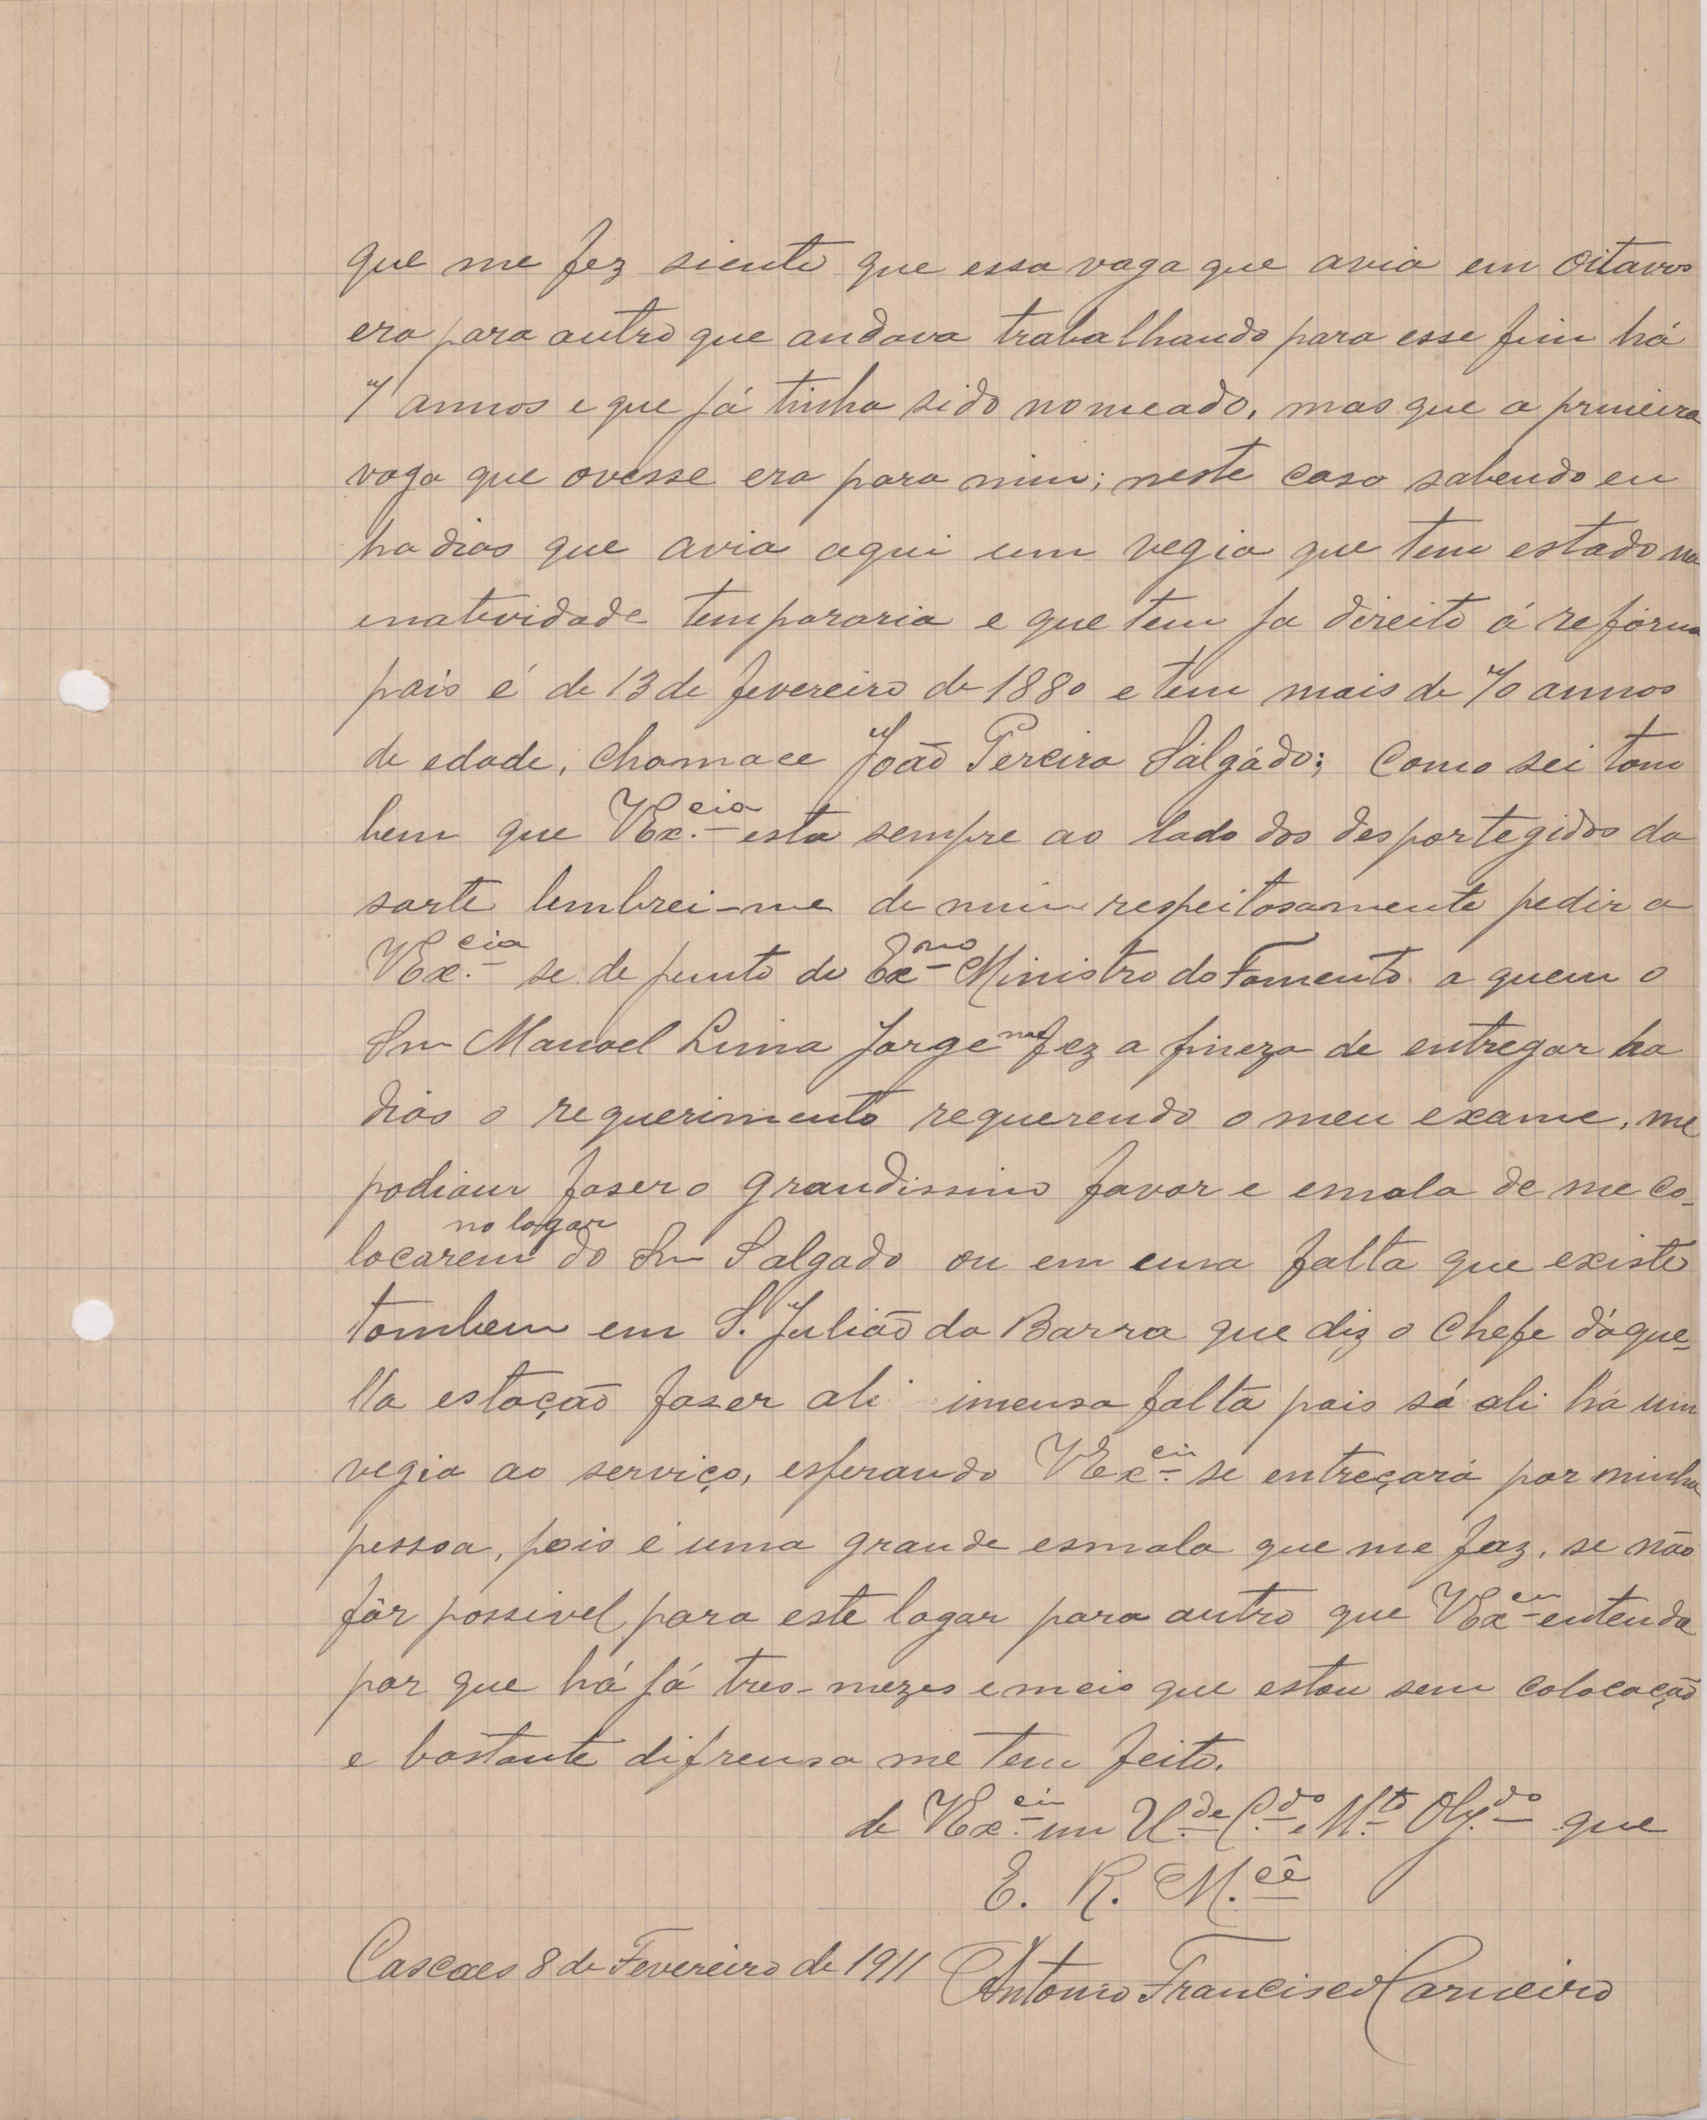 que me fez siente que essa vaga que avia em Oitavos
era para outro que andava trabalhando para esse fim há
7 annos e que já tinha sido nomeado, mas que a primeira
vaga que ovesse era para mim; neste caso sabendo eu
ha dias que avia aqui um vegia que tem estado na
inatividade tempararia e que tem ja direito á reforma
pois é de 13 de fevereiro de 1880 e tem mais de 70 annos
de edade, chamace João Pereira Salgádo; Como sei tam
bem que VEx.cia esta sempre ao lado dos desportegidos da
sorte lembrei-me de mui respeitosamente pedir a
VEx.cia se de junto do Exmo Ministro do Fomento a quem o
Snr Manoel Lima Jorge me fez a fineza de entregar ha
dias o requerimento requerendo o meu exame, me
podiam faser o grandissimo favor e esmola de me co-
locarem no logar do Snr Salgado ou em uma falta que existe
tombem em S. Julião da Barra que diz o Chefe dáque-
lla estação faser ali imensa falta pois só ali há um
vegia ao serviço, esperando VExcia se entreçará por minha
pessoa, pois é uma grande esmola que me faz, se não
fôr possivel para este logar para outro que VExcia entenda
por que há já tres-mezes e meio que estou sem colocação
e bastante difrensa me tem feito.
de VEx.cia um U.de C.do e M.to Obg.do que
E. R. M.cê
Cascaes 8 de Fevereiro de 1911 Antonio Francisco Carneiro